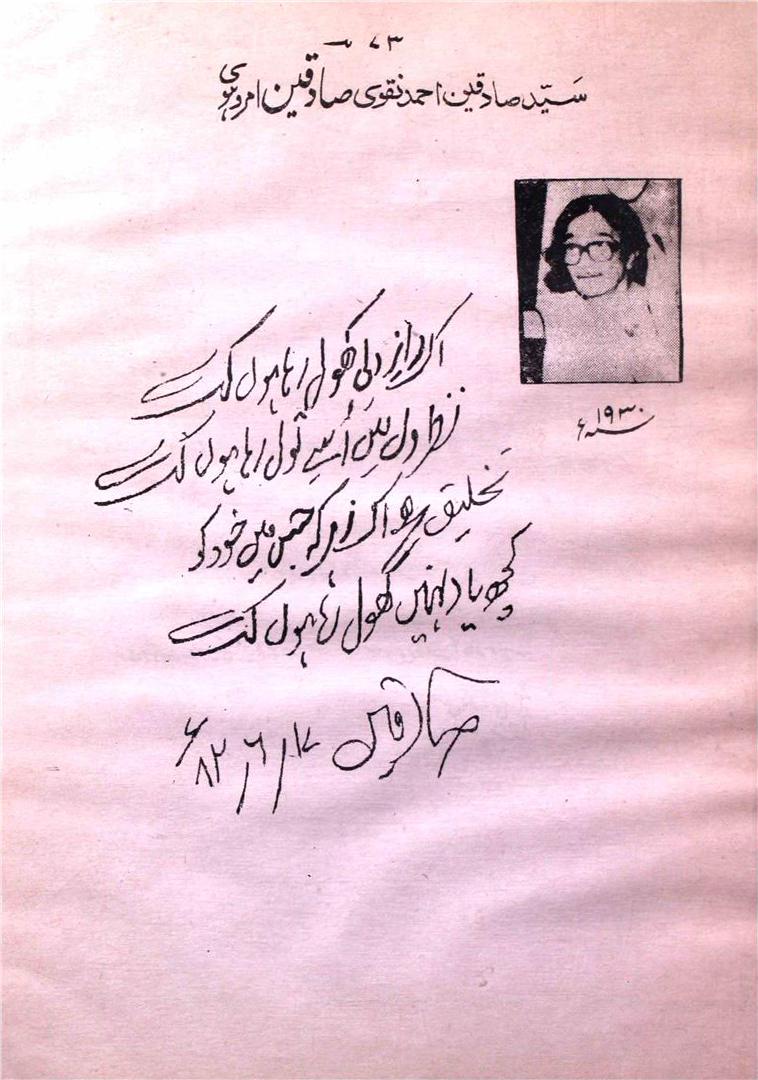 ۶۷۳
سَیّد صادقین احمد نقوی صادقین امروہوی
۱۹۳۰ء
اک راز دلی کھول رہا ہوں کب سے
نظروں میں اُسے تول رہا ہوں کب سے
تخلیق ہے اک زہر کہ جس میں خود کو
کچھ یاد نہیں گھول رہا ہوں کب سے
صادقین
۸۲ء